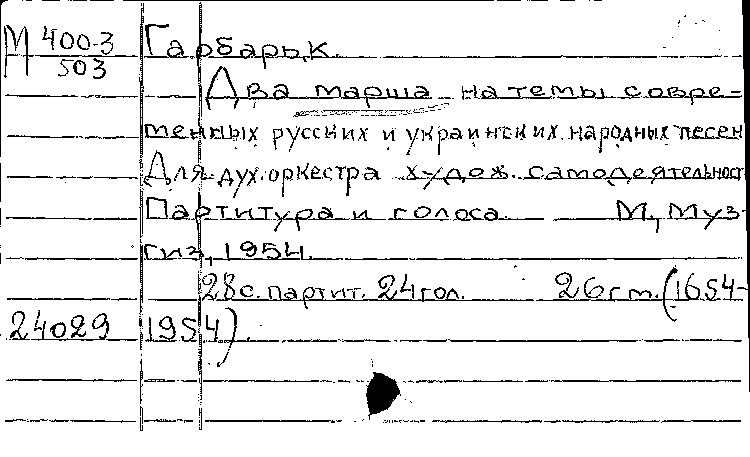 М 400-3 Гарбарь, К.
503
Два марша на темы совре-
менных русских и украинских народных песен
Для дух. оркестра худож. самодеятельност
Партитура и голоса. М., Муз-
гиз, 1954.
28 с. партит. 24 гол. 26 см. (1654-
24029 1954).